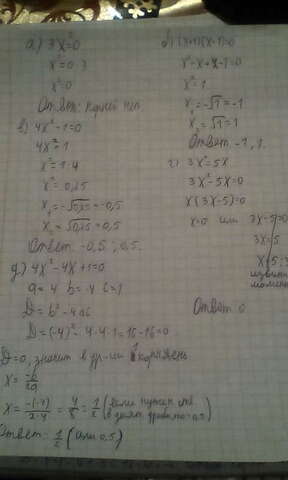 а) 3x²=0
x²=0:3
x²=0
Ответ: корней нет
в) 4x²-1=0
4x²=1
x²=1:4
x²=0,25
x₁=-√0,25=-0,5
x₂=√0,25=0,5
Ответ: -0,5; 0,5.
д) 4x²-4x+1=0
a=4 b=-4 c=1
D=b²-4ac
D=(-4)²-4·4·1=16-16=0
D=0, значит в ур-ии 1 корень
x=-b/2a
x=-(-4)/2·4=4/8=1/2 (если нужен отв
в десят дробях то 0,5)
Ответ: 1/2 (или 0,5)
б) (x+1)(x-1)=0
x²-x+x-1=0
x²=1
x₁=-√1=-1
x₂=√1=1
Ответ -1, 1.
г) 3x²=5x
3x²-5x=0
x(3x-5)=0
x=0 или 3x-5=0
3x=5
x=5:3
Ответ: 0